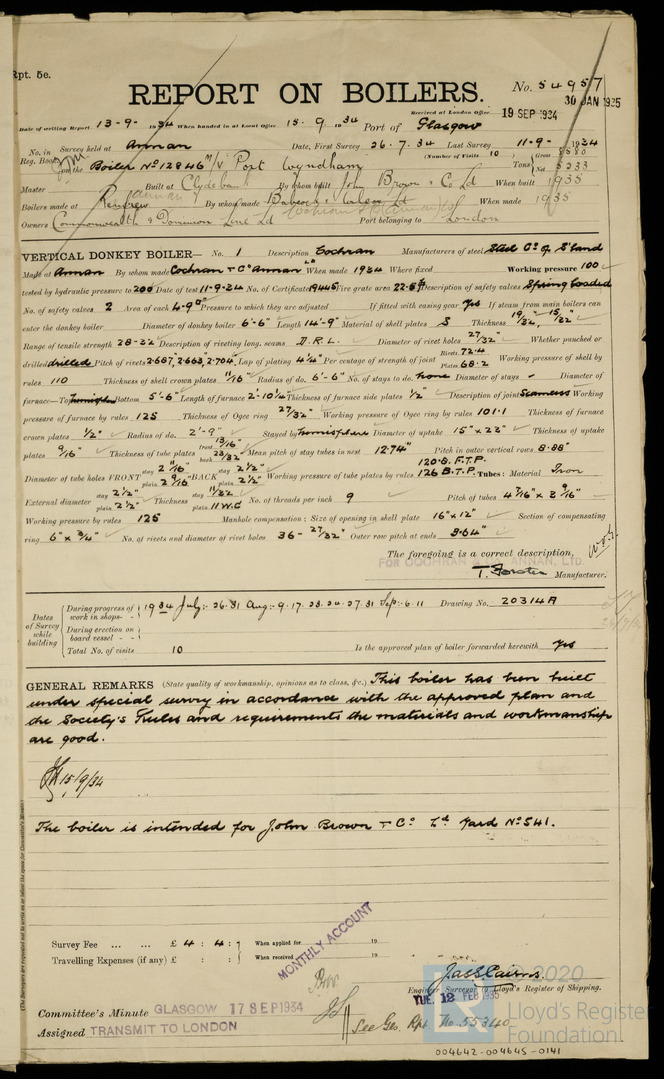 Rpt. 5e.
REPORT ON BOILERS.
No. 54957
30 JAN 1935
Received at London Office 19 SEP 1934
Date of writing Report 13-9- 1934 When handed in at Local Office 15. 9. 1934 Port of Glasgow
No. in Survey held at Annan Date, First Survey 26. 7. 34 Last Survey 11-9- 1934
Reg. Book. (Number of Visits 10)
on the Boiler No 12846 M/V Port Wyndham Tons Gross 8580 Net 5233
Master Built at Clydebank By whom built John Brown & Co Ld When built 1935
Boilers made at Renfrew Annan By whom made Babcock & Wilcox Ld Cochran & Co Annan Ld When made 1935
Owners Commonwealth & Dominion Line Ld Port belonging to London
VERTICAL DONKEY BOILER— No. 1 Description Cochran Manufacturers of steel Steel Co of S'land
Made at Annan By whom made Cochran & Co Annan Ld When made 1934 Where fixed Working pressure 100
tested by hydraulic pressure to 200 Date of test 11-9-34 No. of Certificate 19445 Fire grate area 22.5 ft Description of safety valves Spring Loaded
No. of safety valves 2 Area of each 4.90" Pressure to which they are adjusted If fitted with easing gear Yes If steam from main boilers can
enter the donkey boiler Diameter of donkey boiler 6'-6" Length 14'-9" Material of shell plates S Thickness 19/32, 15/32"
Range of tensile strength 28-32 Description of riveting long. seams D.R.L. Diameter of rivet holes 27/32" Whether punched or
drilled drilled Pitch of rivets 2.687", 2.663", 2.704" Lap of plating 4 1/4" Per centage of strength of joint Rivets 72.4 Plates 68.2 Working pressure of shell by
rules 110 Thickness of shell crown plates 11/16" Radius of do. 6'-6" No. of stays to do. None Diameter of stays - Diameter of
furnace—Top Hemisphere Bottom 5'-6" Length of furnace 2'-10 1/4" Thickness of furnace side plates 1/2" Description of joint Seamless Working
pressure of furnace by rules 125 Thickness of Ogee ring 27/32" Working pressure of Ogee ring by rules 101.1 Thickness of furnace
crown plates 1/2" Radius of do. 2'-9" Stayed by Hemisphere Diameter of uptake 15" x 22" Thickness of uptake
plates 9/16" Thickness of tube plates front 13/16" back 23/32" Mean pitch of stay tubes in nest 12.74" Pitch in outer vertical rows 8.88"
Diameter of tube holes FRONT stay 2 11/16" plain 2 9/16" BACK stay 2 1/2" plain 2 1/2" Working pressure of tube plates by rules 120.8. F.T.P. 126 B.T.P. Tubes: Material Iron
External diameter stay 2 1/2" plain 2 1/2" Thickness stay 11/32" plain 11 W.G No. of threads per inch 9 Pitch of tubes 4 7/16" x 3 9/16"
Working pressure by rules 125 Manhole compensation: Size of opening in shell plate 16" x 12" Section of compensating
ring 6" x 3/4" No. of rivets and diameter of rivet holes 36 - 27/32" Outer row pitch at ends 3.64"
The foregoing is a correct description,
FOR COCHRAN & CO., ANNAN, LTD.
T. Forster Manufacturer.
Dates of Survey while building
During progress of work in shops - - 1934 July:- 26.31 Aug:- 9.17.23.24.27.31 Sep:- 6.11 Drawing No. 20314A
During erection on board vessel - - -
Total No. of visits 10 Is the approved plan of boiler forwarded herewith Yes
GENERAL REMARKS (State quality of workmanship, opinions as to class, &c.) This boiler has been built
under special survey in accordance with the approved plan and
the Society's Rules and requirements the materials and workmanship
are good.
15/9/34
The boiler is intended for John Brown & Co Ld Yard No 541.
Survey Fee ... ... £ 4 : 4 : When applied for 19
Travelling Expenses (if any) £ : : When received 19
MONTHLY ACCOUNT
Jas S Cairns
Engineer Surveyor to Lloyd's Register of Shipping.
TUE. 12 FEB 1935
Committee's Minute GLASGOW 17 SEP 1934
Assigned TRANSMIT TO LONDON
See Gls. Rpt. No. 55340
© 2020
Lloyd's Register
Foundation
004642-004645-0141